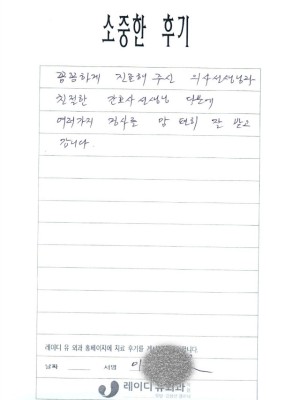 소중한 후기
꼼꼼하게 진료해 주신 의사선생님과
친절한 간호사 선생님 덕분에
여러가지 검사를 맘 편히 잘 받고
갑니다
레이디 유 외과 홈페이지에 치료 후기를
날짜 서명 이
레이디유외과